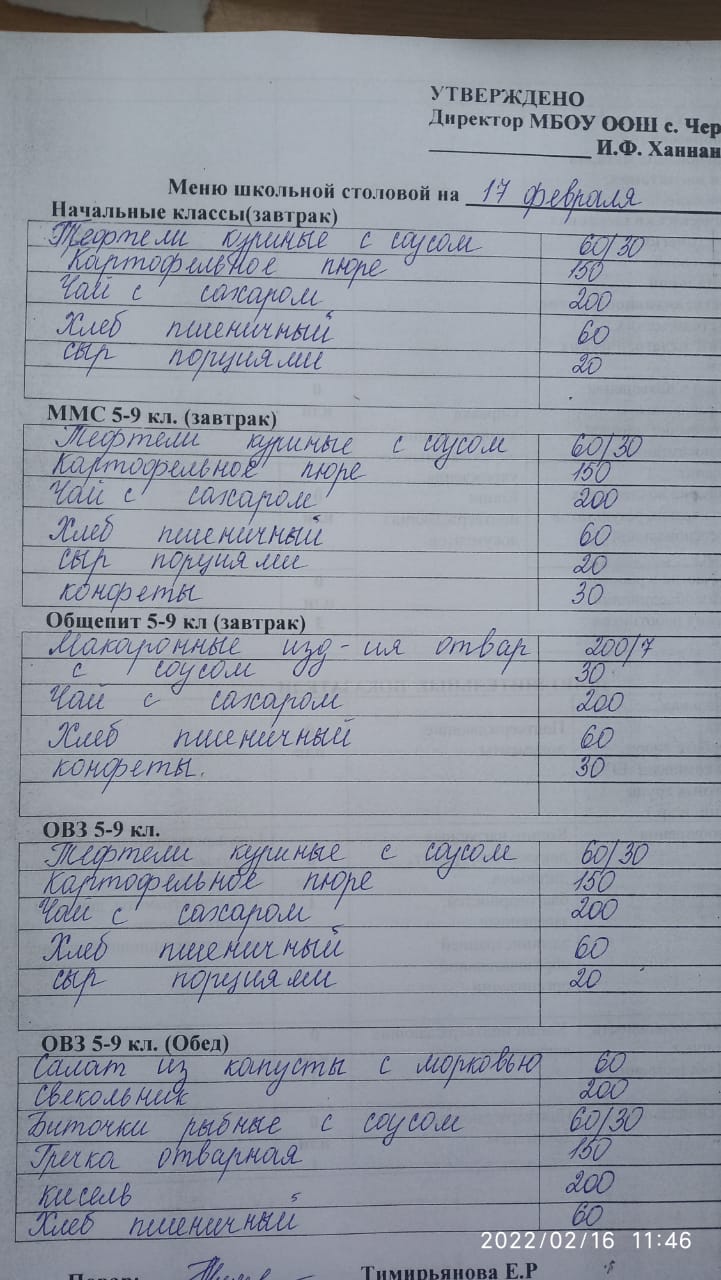 УТВЕРЖДЕНО
Директор МБОУ ООШ с. Чер
И.Ф. Ханнан
Меню школьной столовой на 17 февраля
Начальные классы(завтрак)
Тефтели куриные с соусом 60/30
Картофельное пюре 150
Чай с сахаром 200
Хлеб пшеничный 60
сыр порциями 20
ММС 5-9 кл. (завтрак)
Тефтели куриные с соусом 60/30
Картофельное пюре 150
Чай с сахаром 200
Хлеб пшеничный 60
сыр порциями 20
конфеты 30
Общепит 5-9 кл (завтрак)
Макаронные изд-ия отвар 200/7
с соусом 30
Чай с сахаром 200
Хлеб пшеничный 60
конфеты. 30
ОВЗ 5-9 кл.
Тефтели куриные с соусом 60/30
Картофельное пюре 150
Чай с сахаром 200
Хлеб пшеничный 60
сыр порциями 20
ОВЗ 5-9 кл. (Обед)
Салат из капусты с морковью 60
Свекольник 200
Биточки рыбные с соусом 60/30
Гречка отварная 150
кисель 200
Хлеб пшеничный 60
2022/02/16 11:46
Повар: Тимирьянова Е.Р